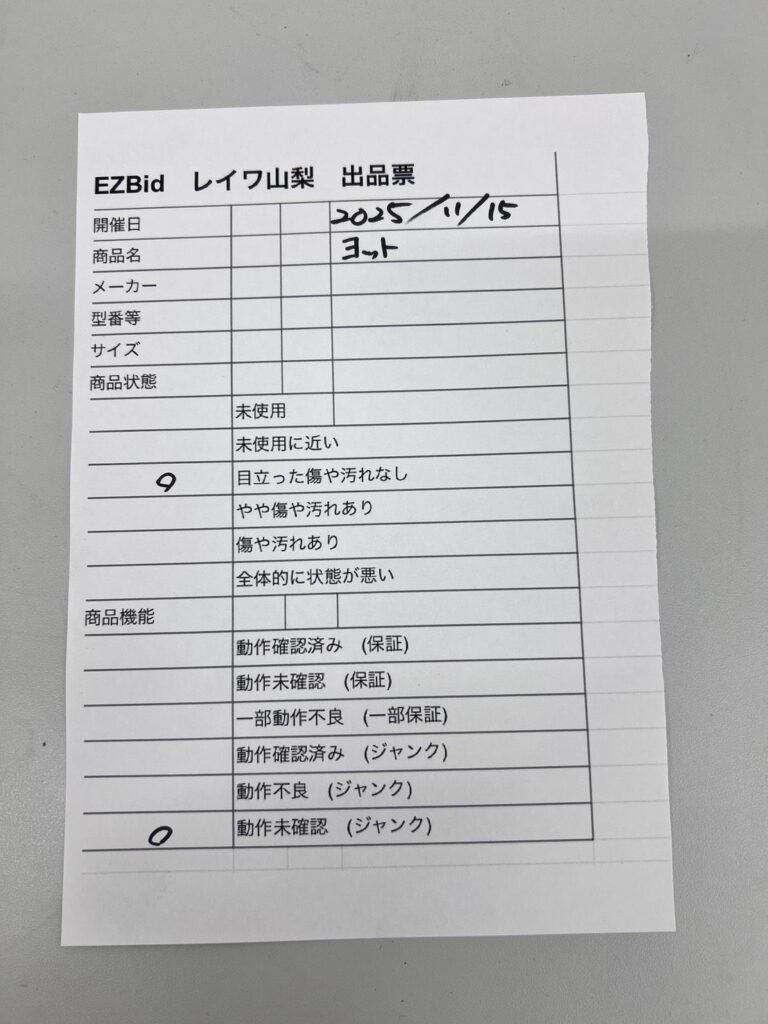 EZBid レイワ山梨 出品票
開催日 2025/11/15
商品名 ヨット
メーカー
型番等
サイズ
商品状態
未使用
未使用に近い
○ 目立った傷や汚れなし
やや傷や汚れあり
傷や汚れあり
全体的に状態が悪い
商品機能
動作確認済み (保証)
動作未確認 (保証)
一部動作不良 (一部保証)
動作確認済み (ジャンク)
動作不良 (ジャンク)
○ 動作未確認 (ジャンク)